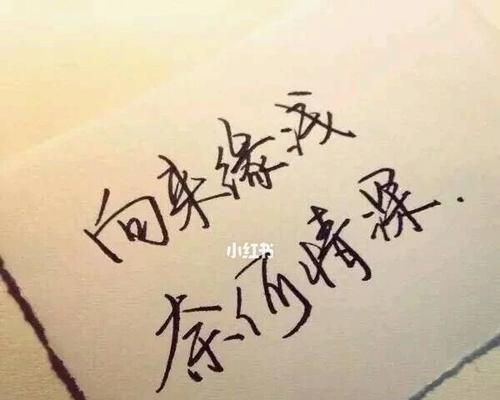 向来缘浅
奈何情深.
小红书